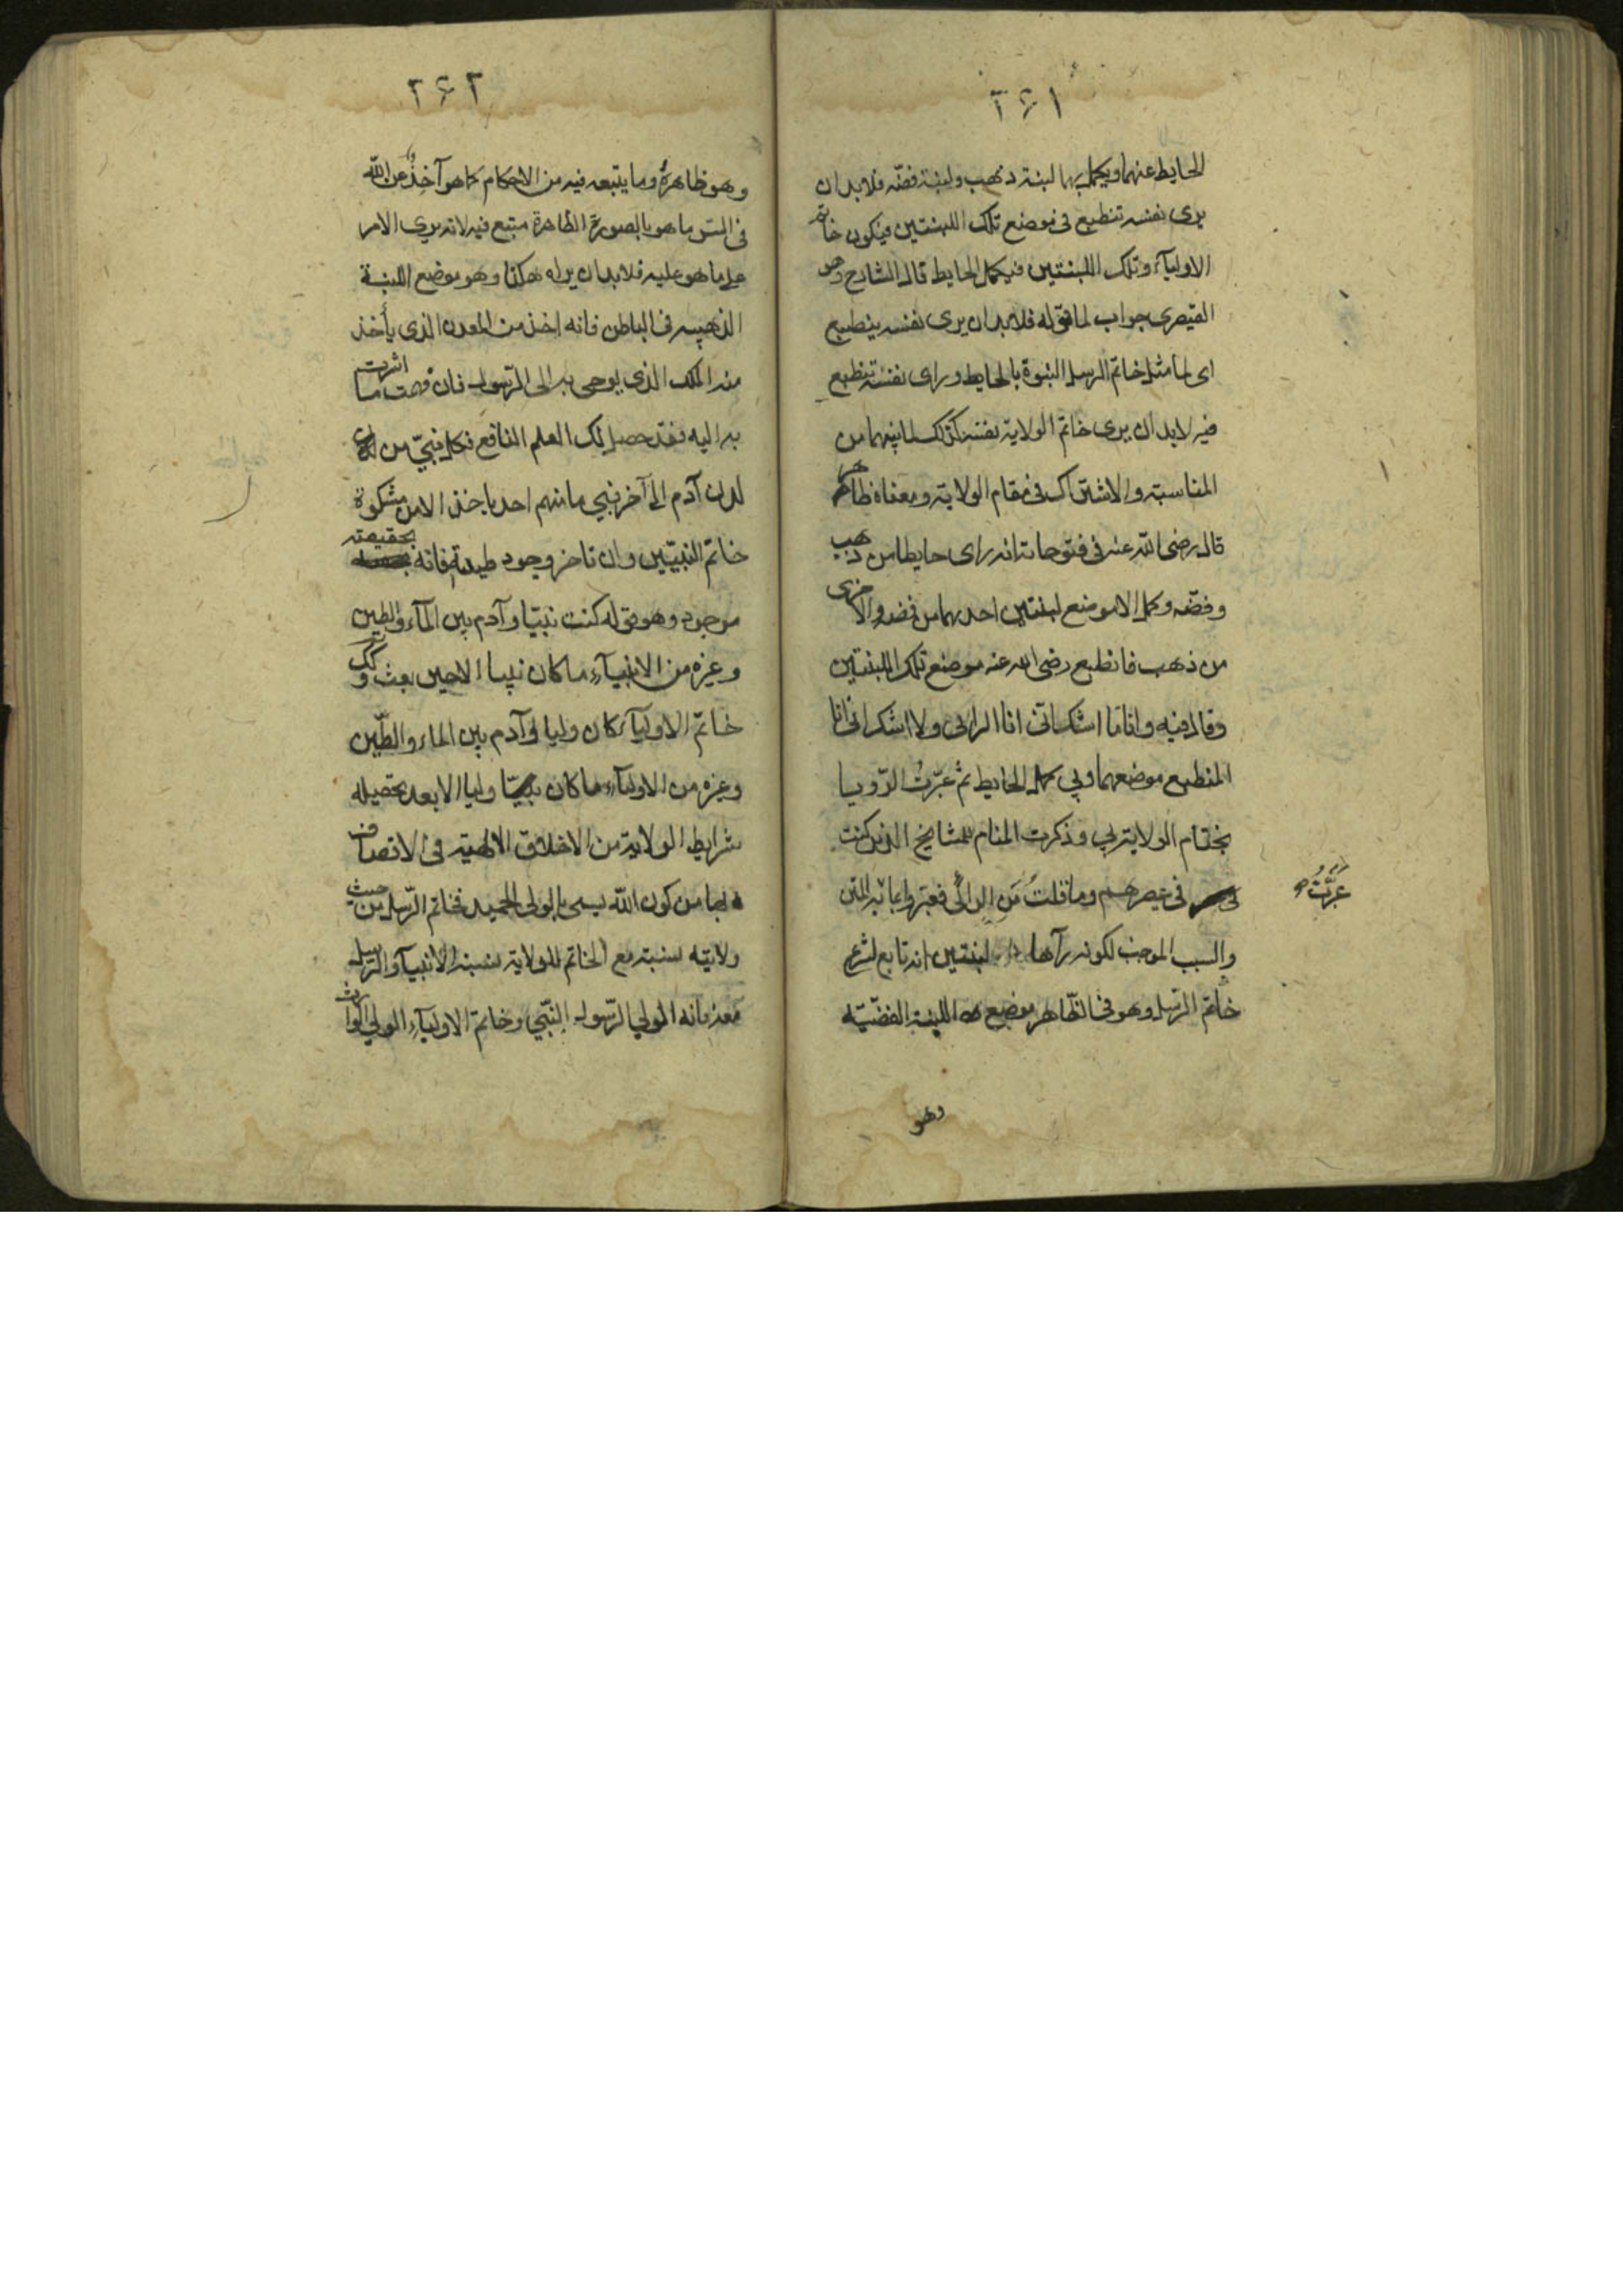 ۲۶۱
الحايط عنهما ويكمل بهما لبنة ذهب ولبنة فضة فلابد ان
يرى نفسه تنطبع فى موضع تلك اللبنتين فيكون خاتم
الاوليآء وتلك اللبنتين فيكمل الحايط قال الشارح وهو
القيصرى جواب لما قوله فلابد ان يرى نفسه ينطبع
اى لما مثل خاتم الرسل النبوة بالحايط وراى نفسه تنطبع
فيه لابد ان يرى خاتم الولاية نفسه كذلك لما بينهما من
المناسبة والاشتراك فى مقام الولاية ومعناه ظاهر
قال رضى الله عنه فى فتوحاته انه راى حايطا من ذهب
وفضه وكمل الا موضع لبنتين احديهما من فضه والاخرى
من ذهب فانطبع رضى الله عنه موضع تلك اللبنتين
وقال فيه وانا ما اشك انى انا الرائى ولا اشك انى انا
المنطبع موضعهما وبى كمل الحايط ثم عبّرتُ الرّويا
بختام الولاية بى وذكرت المنام للمشايخ الذين كنت
فى عصرهم وما قلتُ مَن الرائى فعبّروا بما
عبّرتُ
والسبب الموجب لكونه رآها لبنتين انه تابع لشرع
خاتم الرسل وهو فى الظاهر موضع اللبنة الفضيّه
وهو
۲۶۲
وهو ظاهرهُ وما يتبعه فيه من الاحكام كما هو آخِذٌ عن الله
فى السّر ما هو بالصورة الظاهرة متبع فيه لانه يرى الامر
على ما هو عليه فلابد ان يراه هكذا وهو موضع اللبنة
الذهبيه فى الباطن فانه اخذ من المعدن الذى يأخذ
منه الملك الذى يوحى به الى الرّسول فان فهمت ما اشرت
به اليه فقد حصل لك العلم النافع فكل نبىّ من
لدن آدم الى آخر نبي ما منهم احد ياخذ الا من مشكوة
خاتم النبيّين وان تاخر وجود طينته فانه بحقيقته
موجود وهو قوله كنت نبيّا وآدم بين المآء والطين
وغيره من الانبيآء ما كان نبيا الا حين بعث وكذلك
خاتم الاوليآء كان وليا وآدم بين الماء والطّين
وغيره من الاوليآء ما كان وليا الا بعد تحصيله
شرايط الولاية من الاخلاق الالهيّه فى الاتصاف
بها من كون الله يسمى بالولى الحميد فخاتم الرّسل من حيث
ولايته نسبته مع الخاتم للولاية نسبة الانبيآء والرّسل
معه فانه الولي الرّسول النّبي وخاتم الاوليآء الولي الوارث